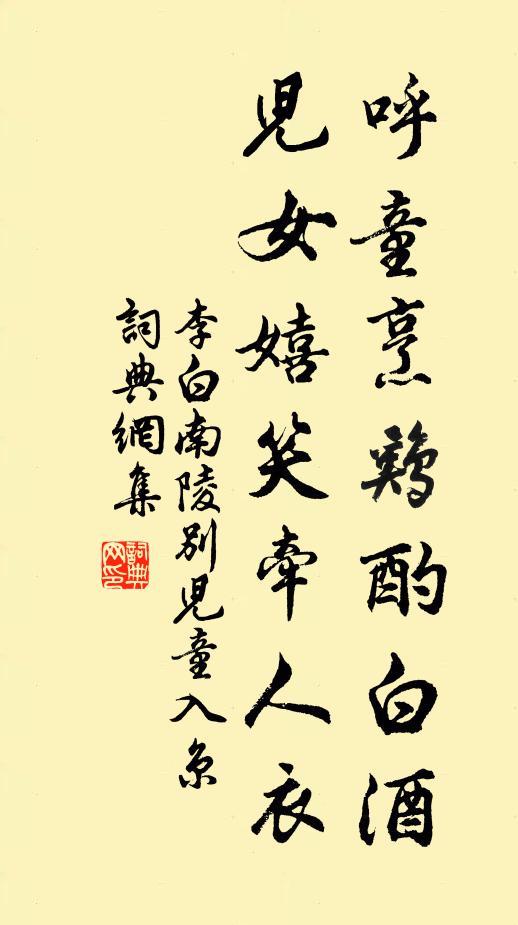 呼童烹鷄酌白酒
兒女嬉笑牽人衣
李白南陵別兒童入京
詞典網集
詞典
网印